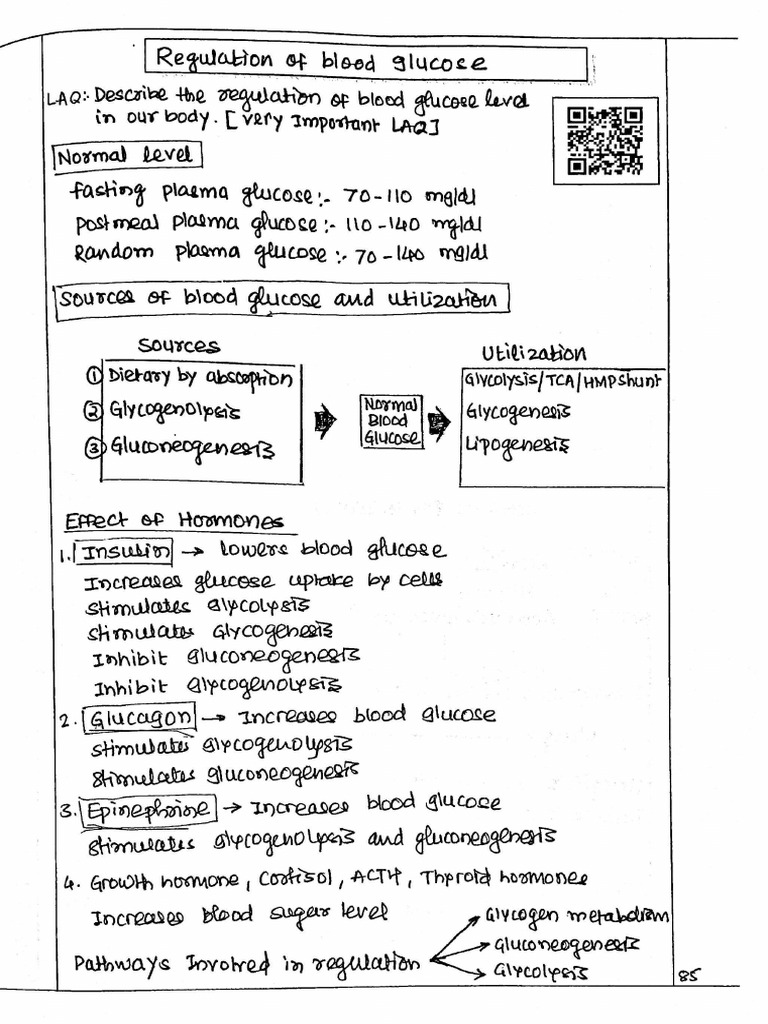 Regulation of blood glucose
LAQ:- Describe the regulation of blood glucose level
in our body. [very Important LAQ]
Normal level
Fasting plasma glucose:- 70-110 mg/dl
Postmeal plasma glucose:- 110-140 mg/dl
Random plasma glucose:- 70-140 mg/dl
Sources of blood glucose and utilization
Sources
① Dietary by absorption
② Glycogenolysis
③ Gluconeogenesis
Normal
Blood
Glucose
Utilization
Glycolysis/TCA/HMPshunt
Glycogenesis
Lipogenesis
Effect of Hormones
1. Insulin → Lowers blood glucose
Increases glucose uptake by cells
Stimulates Glycolysis
Stimulates Glycogenesis
Inhibit gluconeogenesis
Inhibit glycogenolysis
2. Glucagon → Increases blood glucose
Stimulates glycogenolysis
Stimulates gluconeogenesis
3. Epinephrine → Increases blood glucose
Stimulates glycogenolysis and gluconeogenesis
4. Growth hormone, Cortisol, ACTH, Thyroid hormones
Increases blood sugar level
Pathways Involved in regulation
Glycogen metabolism
Gluconeogenesis
Glycolysis
85